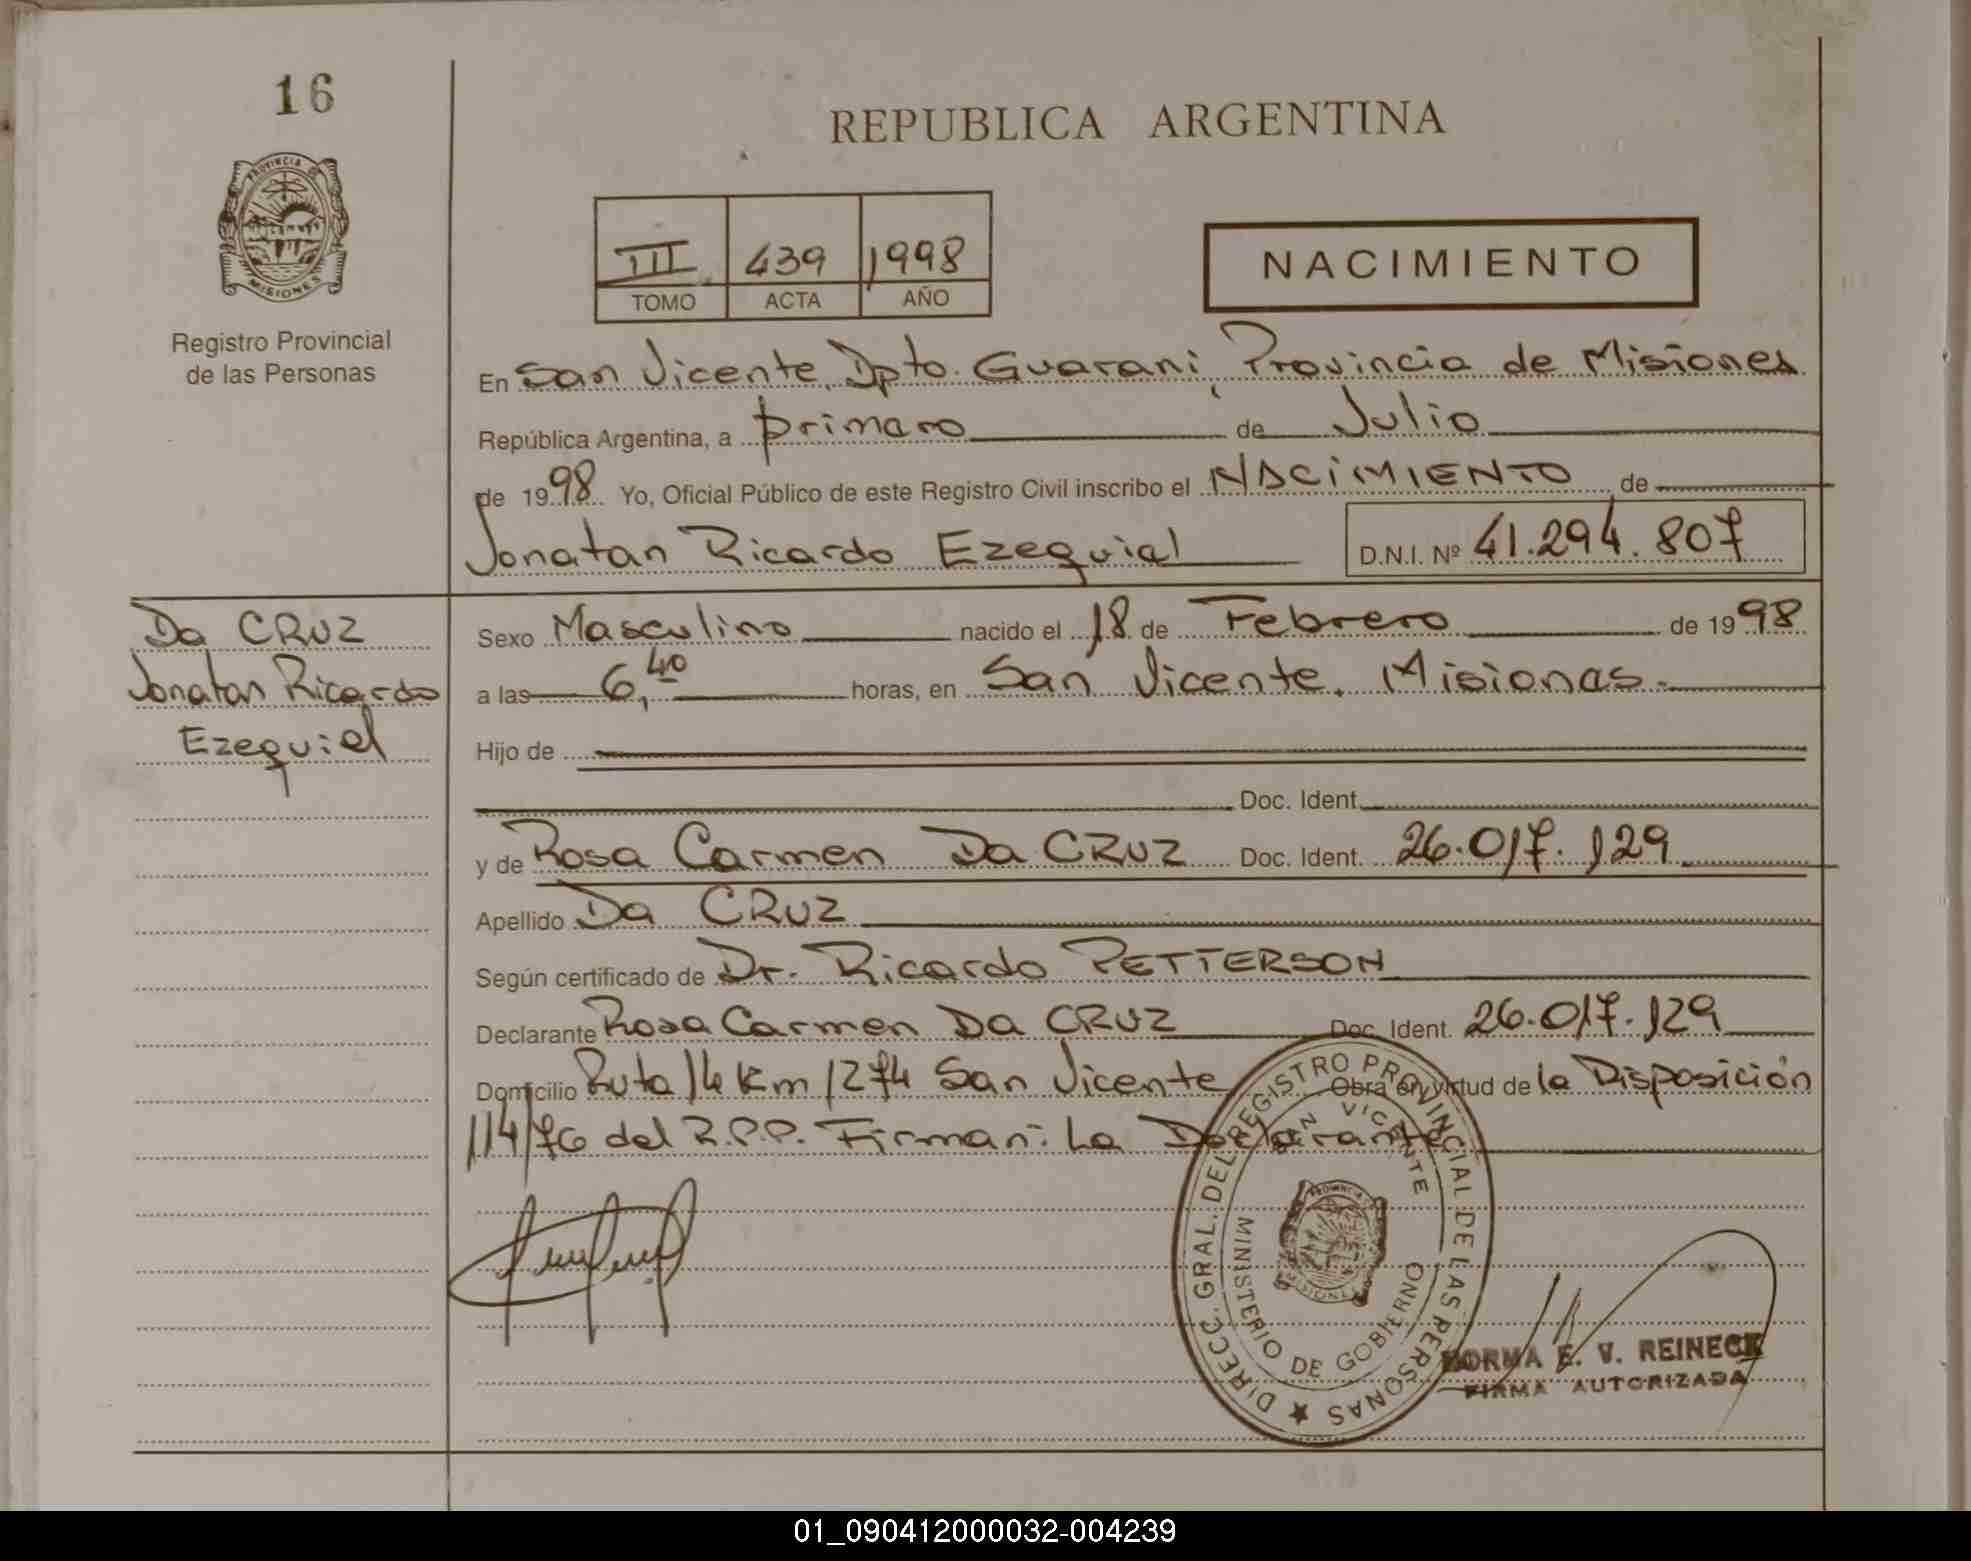 16
REPUBLICA ARGENTINA
PROVINCIA DE
MISIONES
Registro Provincial
de las Personas
III 439 1998
TOMO ACTA AÑO
NACIMIENTO
En San Vicente, Dpto. Guarani, Provincia de Misiones
República Argentina, a primero de Julio
de 1998 Yo, Oficial Público de este Registro Civil inscribo el NACIMIENTO de
Jonatan Ricardo Ezequiel D.N.I. Nº 41.294.807
Da CRUZ
Jonatan Ricardo
Ezequiel
Sexo Masculino nacido el 18 de Febrero de 1998
a las 6,40 horas, en San Vicente, Misiones.
Hijo de
Doc. Ident.
y de Rosa Carmen Da CRUZ Doc. Ident. 26.017.129
Apellido Da CRUZ
Según certificado de Dr. Ricardo PETTERSON
Declarante Rosa Carmen Da CRUZ Doc. Ident. 26.017.129
Domicilio Ruta 14 Km 1274 San Vicente Obra en virtud de la Disposición
114/76 del R.P.P. Firman: La Declarante
DIRECC. GRAL. DEL REGISTRO PROVINCIAL DE LAS PERSONAS
SAN VICENTE
MINISTERIO DE GOBIERNO
NORMA E. V. REINECK
FIRMA AUTORIZADA
01_090412000032-004239